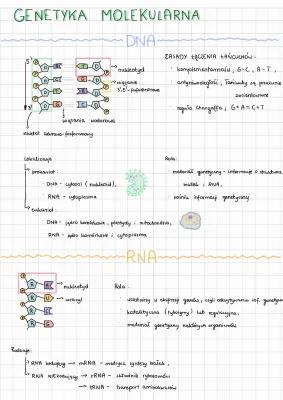 GENETYKA MOLEKULARNA
DNA
ZASADY ŁĄCZENIA ŁAŃCUCHÓW:
nukleotyd
· komplementarność; G-C, A-T,
wiązanie
3',5'-fosfodiestrowe
· antyrównoległość; łańcuchy są przeciwnie zorientowane
· reguła Chargaffa; G+A=C+T
wiązania wodorowe
Lokalizacja
Rola:
· prokariot:
· materiał genetyczny - informacje o strukturze białek i RNA,
DNA - cytozol (nukleoid),
RNA - cytoplazma
· nośnik informacji genetycznej
· eukariot:
DNA - jądro komórkowe, plastydy i mitochondria,
RNA - jądro komórkowe i cytoplazma
RNA
nukleotyd
Rola:
uracyl
· udział w ekspresji genów, czyli odczytywaniu inf. genetycznej
· katalityczna (rybozymy) lub regulacyjna,
· materiał genetyczny niektórych organizmów
Rodzaje:
RNA kodujący → mRNA - matryca syntezy białek,
RNA niekodujący → rRNA - składnik rybosomów
→ tRNA - transport aminokwasów